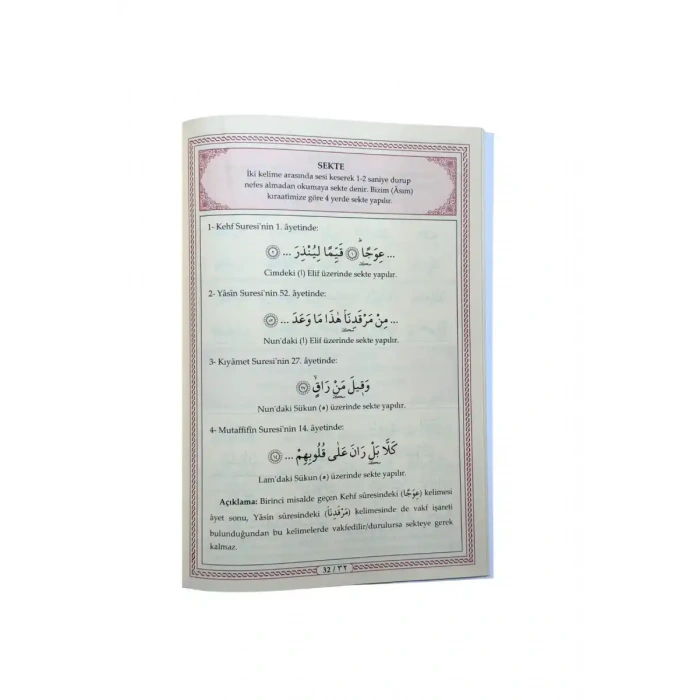 SEKTE
İki kelime arasında sesi keserek 1-2 saniye durup
nefes almadan okumaya sekte denir. Bizim (Âsım)
kıraatimize göre 4 yerde sekte yapılır.
1- Kehf Suresi'nin 1. âyetinde:
... عِوَجًا ۜ ﴿١﴾ قَيِّمًا لِيُنْذِرَ ... ﴿٢﴾
Cimdeki (ا) Elif üzerinde sekte yapılır.
2- Yâsîn Suresi'nin 52. âyetinde:
... مِنْ مَرْقَدِنَا ۜ هٰذَا مَا وَعَدَ ... ﴿٥٢﴾
Nun'daki (ا) Elif üzerinde sekte yapılır.
3- Kıyâmet Suresi'nin 27. âyetinde:
وَقِيلَ مَنْ ۜ رَاقٍ ﴿٢٧﴾
Nun'daki Sükun (ْ) üzerinde sekte yapılır.
4- Mutaffifîn Suresi'nin 14. âyetinde:
كَلَّا بَلْ ۜ رَانَ عَلٰى قُلُوبِهِمْ ... ﴿١٤﴾
Lam'daki Sükun (ْ) üzerinde sekte yapılır.
Açıklama: Birinci misalde geçen Kehf sûresindeki (عِوَجًا) kelimesi
âyet sonu, Yâsîn sûresindeki (مَرْقَدِنَا) kelimesinde de vakf işareti
bulunduğundan bu kelimelerde vakfedilir/durulursa sekteye gerek
kalmaz.
32 / ٣٢